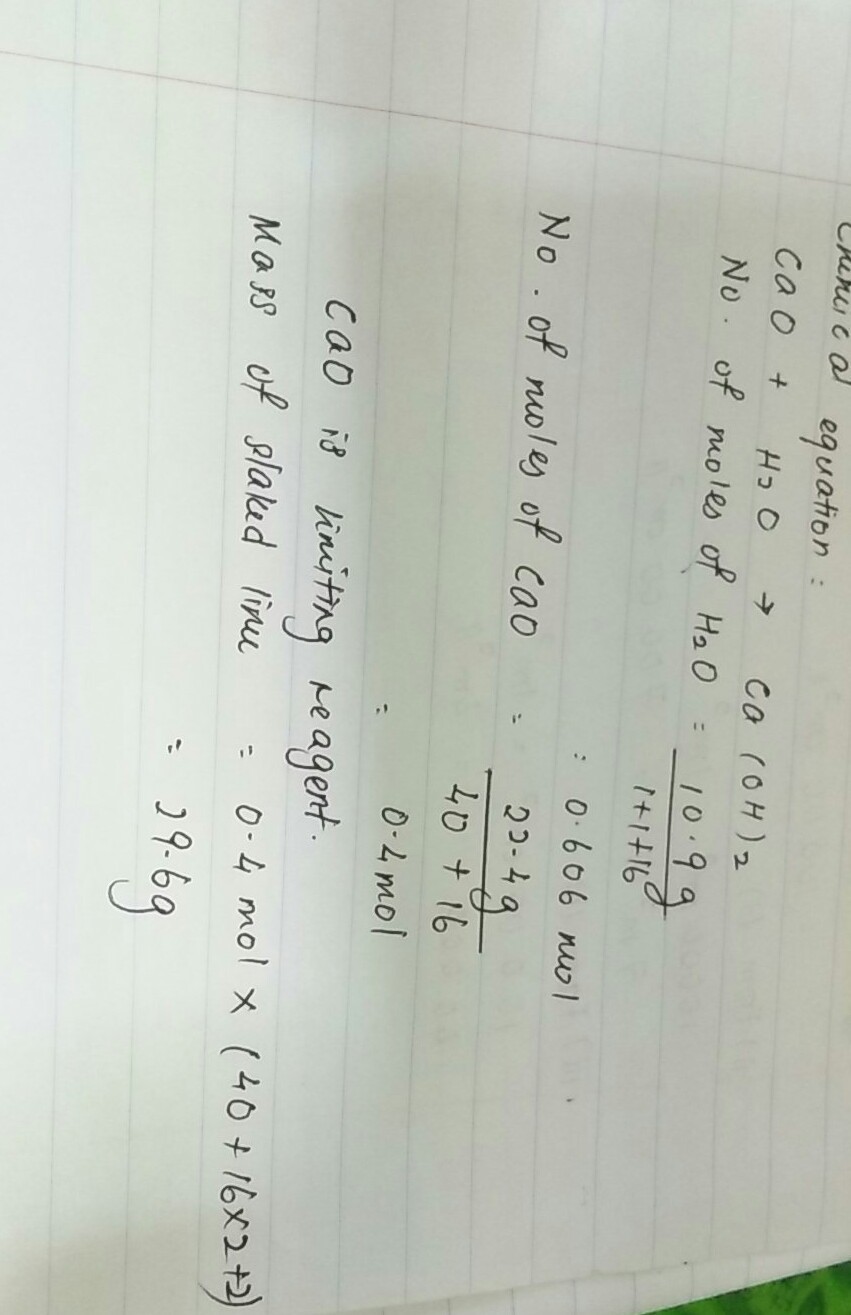 Chemical equation :
CaO + H2O → Ca(OH)2
No. of moles of H2O = 10.9g
1+1+16
: 0.606 mol.
No. of moles of CaO = 22.4g
40 + 16
= 0.4mol
CaO is limiting reagent.
Mass of slaked lime = 0.4 mol × (40 + 16×2+2)
= 29.6g